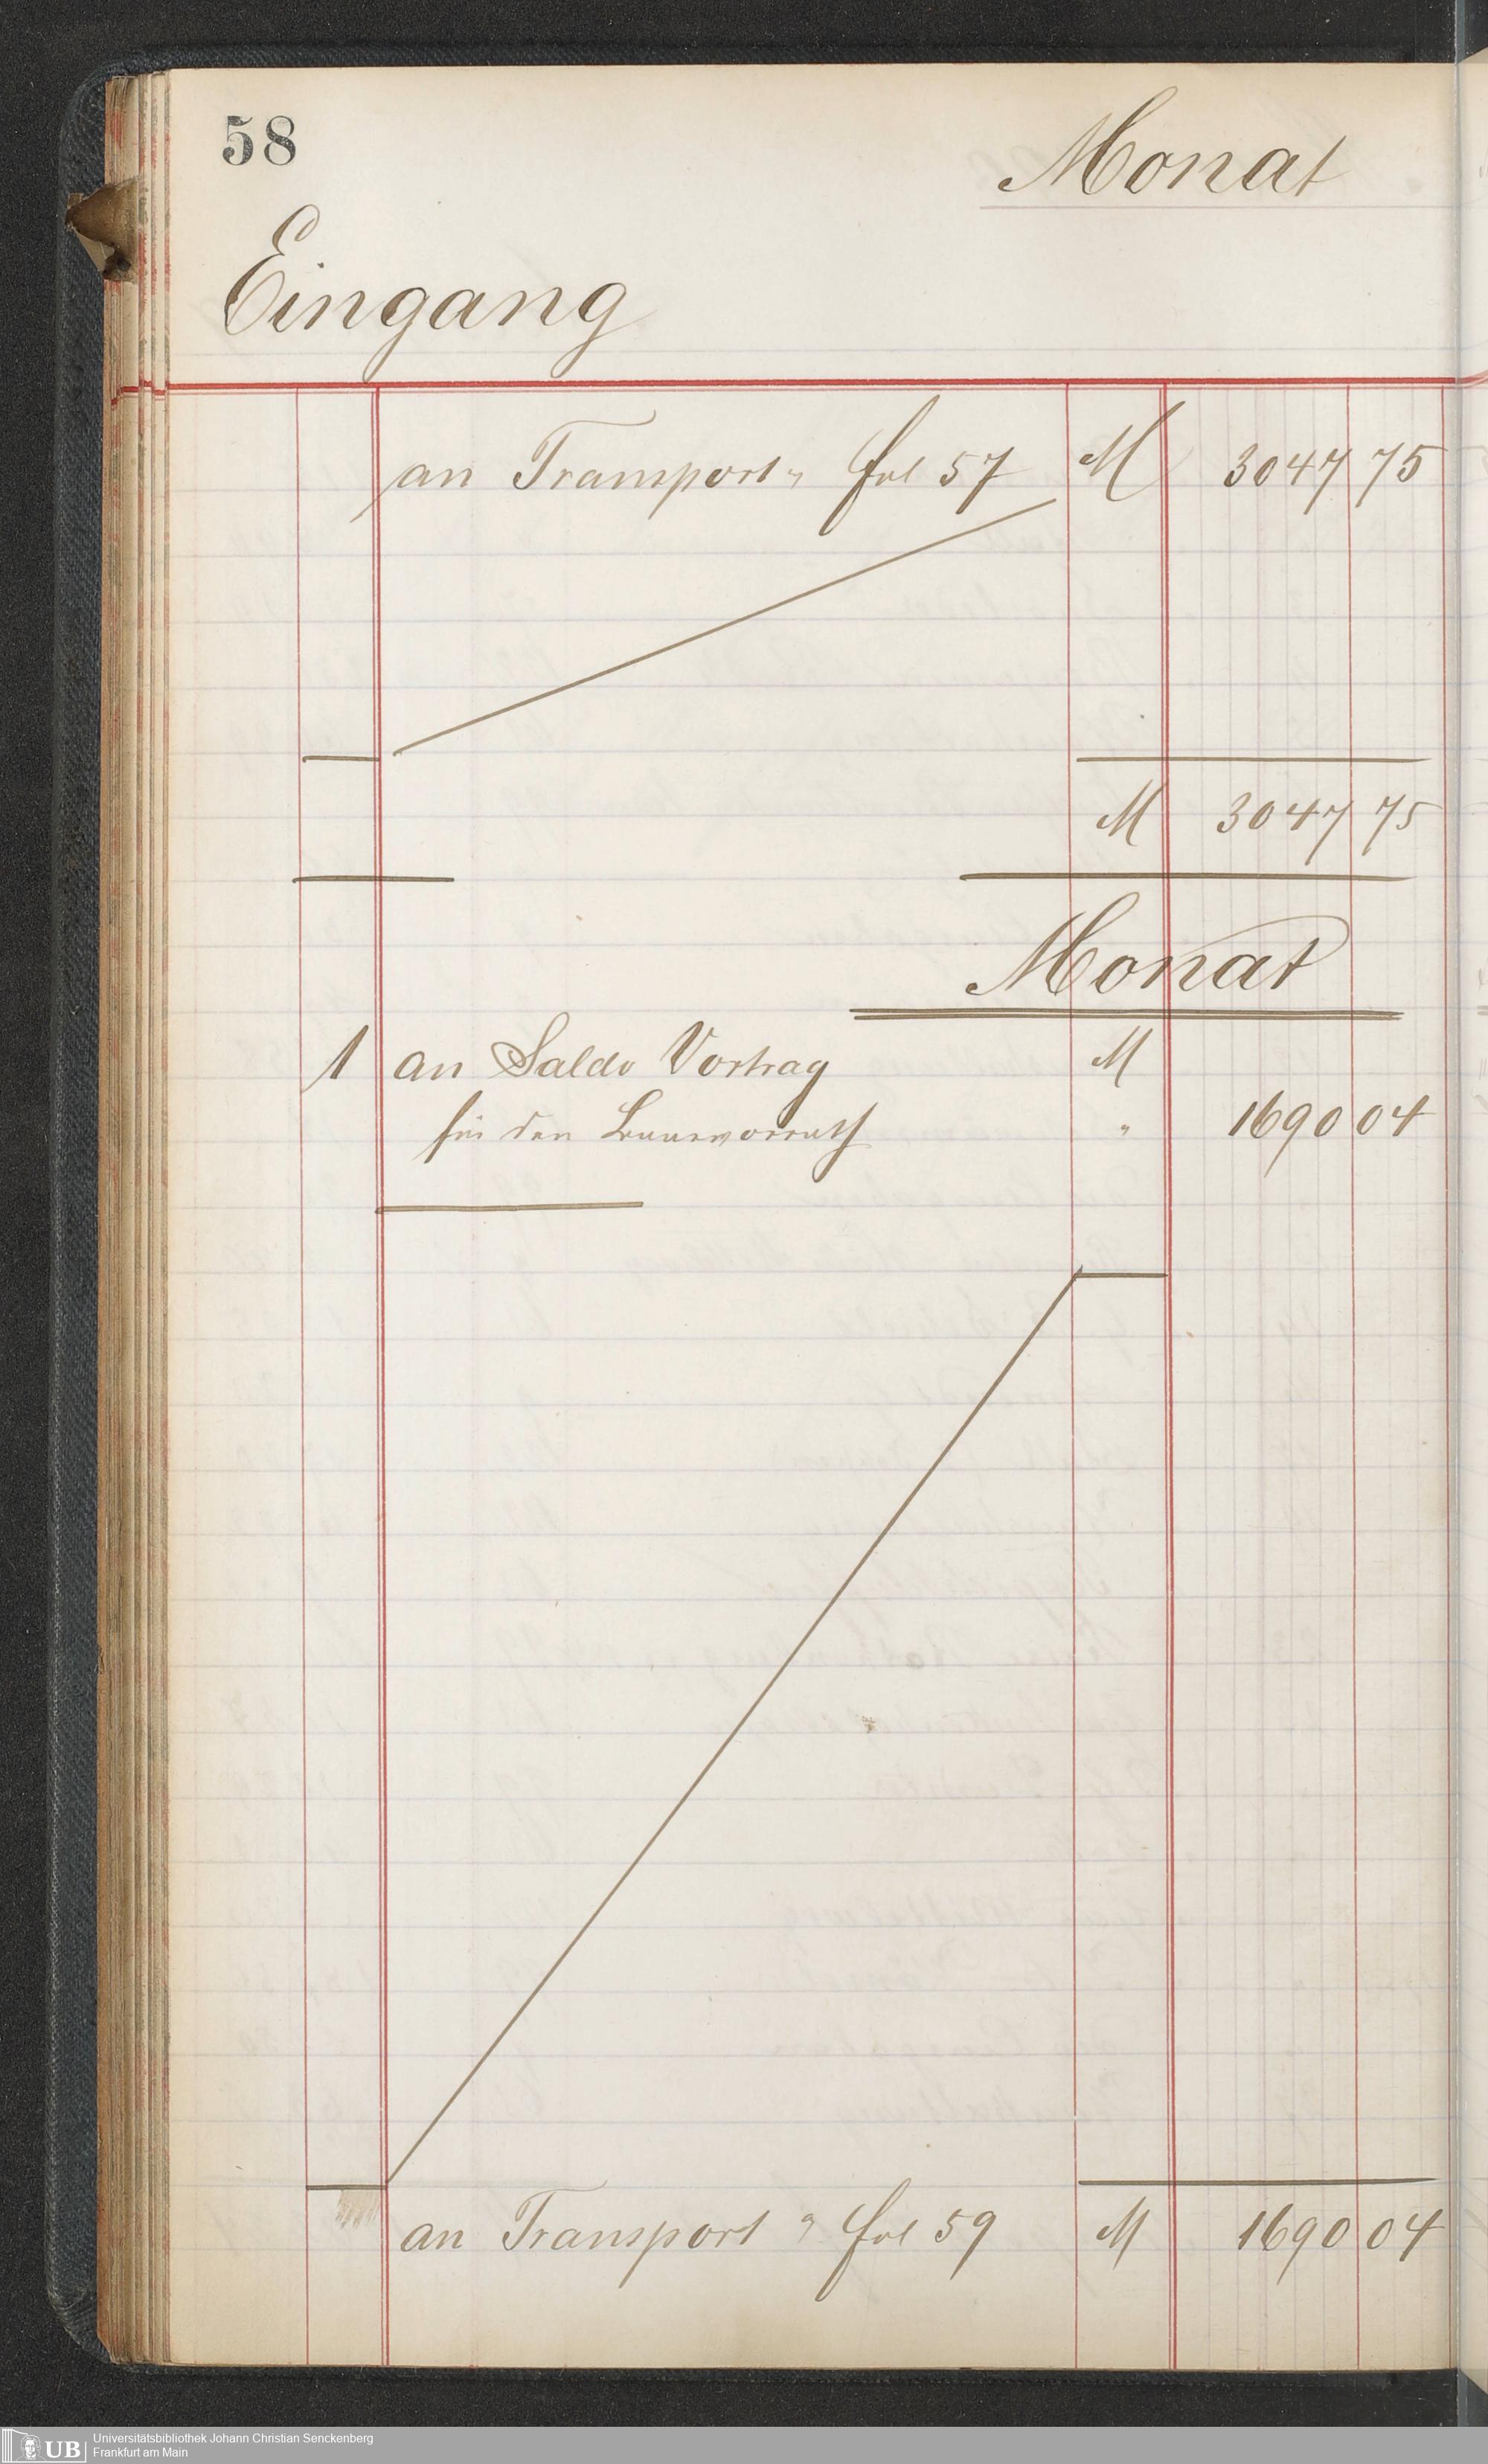 58
Monat
Eingang
an Transport v fol 57 M 3047 75
M 3047 75
Monat
1 an Saldo Vortrag M
für den " 1690 04
an Transport v fol 59 M 1690 04
UB Universitätsbibliothek Johann Christian Senckenberg
Frankfurt am Main